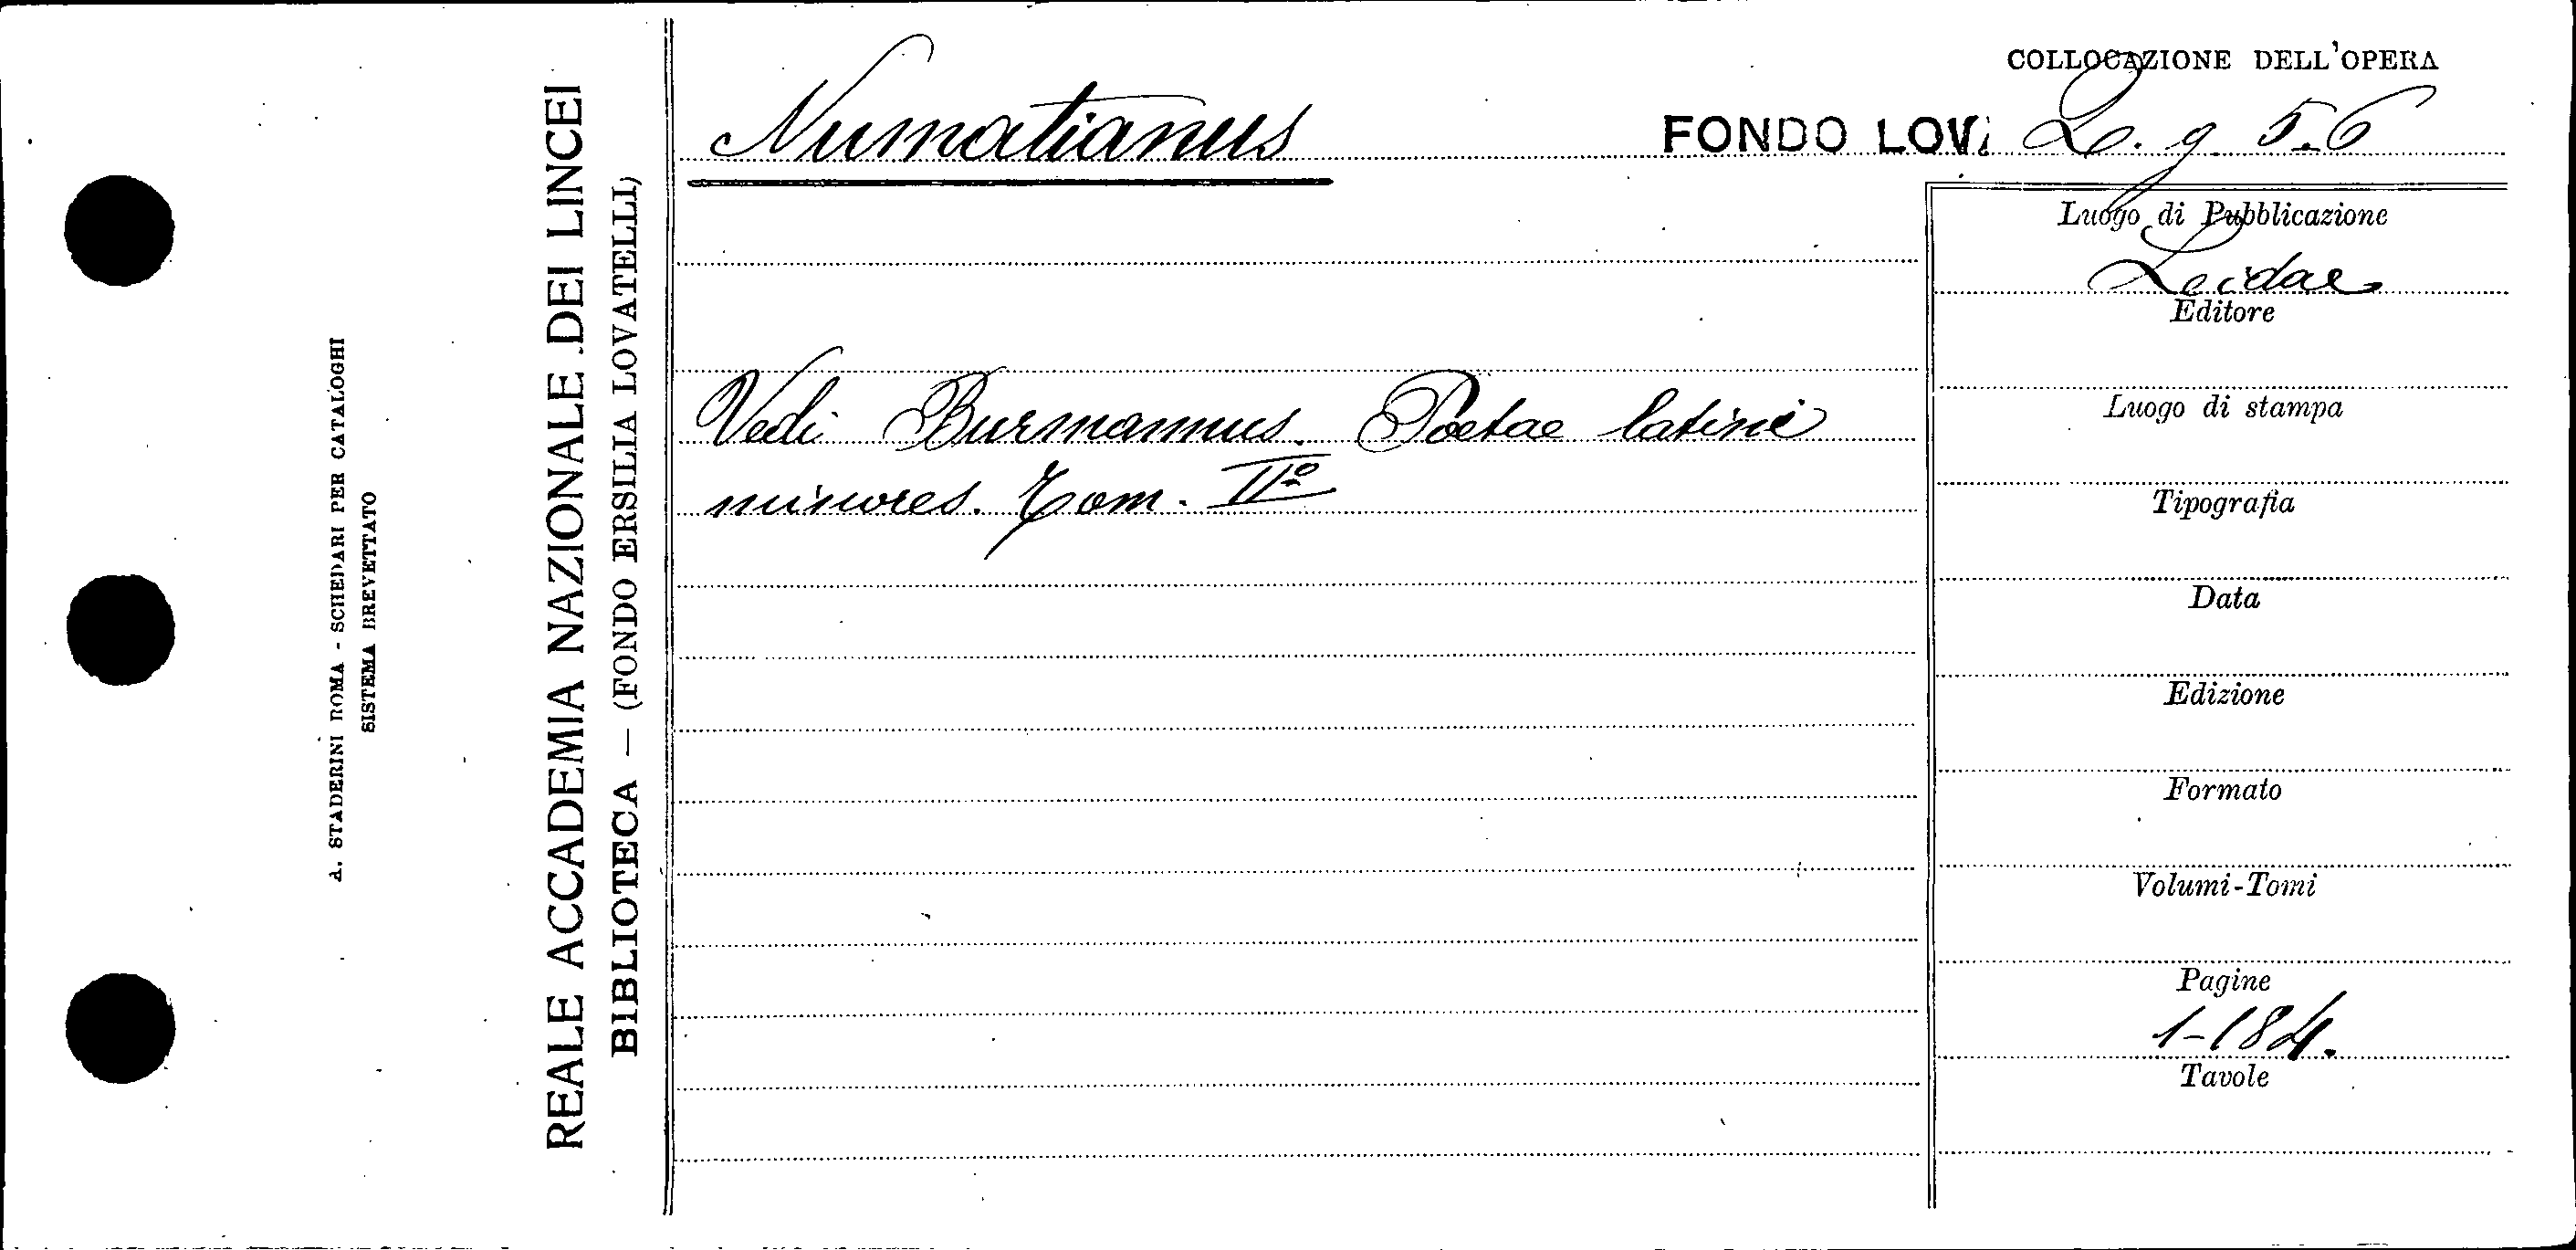 A. STADERINI ROMA - SCHEDARI PER CATALOGHI
SISTEMA BREVETTATO
REALE ACCADEMIA NAZIONALE DEI LINCEI
BIBLIOTECA — (FONDO ERSILIA LOVATELLI)
COLLOCAZIONE DELL'OPERA
Numatianus
FONDO LOV. L. g. 5.6
Vedi Burmannus. Poetae latini
minores. Tom. IIº
Luogo di Pubblicazione
Leidae
Editore
Luogo di stampa
Tipografia
Data
Edizione
Formato
Volumi-Tomi
Pagine
1-184.
Tavole